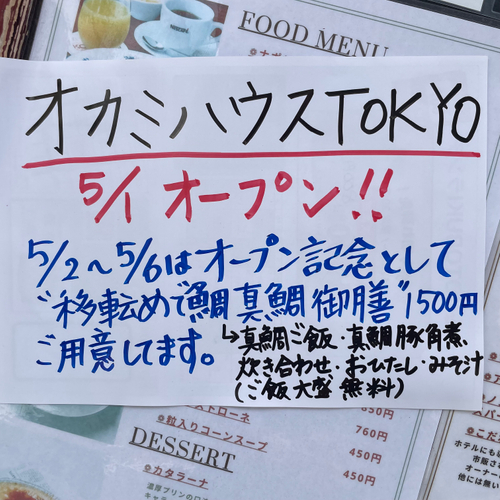 FOOD MENU
オカミハウスTOKYO
5/1 オープン!!
5/2～5/6はオープン記念として
"移転めで鯛真鯛御膳"1500円
ご用意してます。
↳真鯛ご飯・真鯛豚角煮、
炊き合わせ・おひたし・みそ汁
(ご飯大盛無料)
850円
粒入りコーンスープ
760円
450円
DESSERT
カタラーナ
450円
濃厚プリンの
ホテルにも
市販さ
オーナー
他には無い